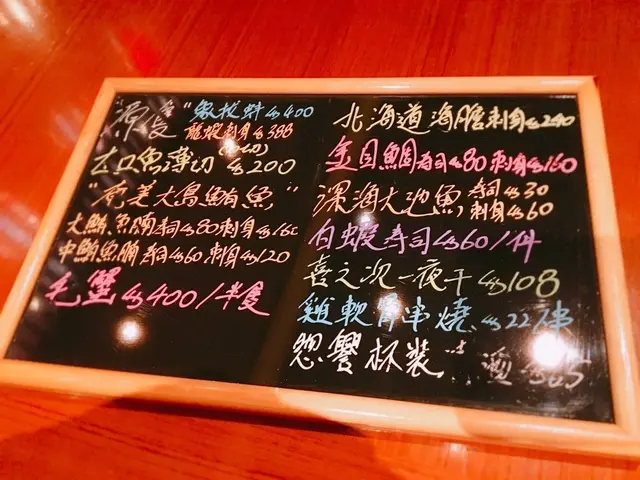 "原隻" 象拔蚌 $400
龍蝦刺身 $388
吉口魚薄切 $200
"奄美大島鮪魚"
大鮪魚腩寿司$80刺身$160
中鮪魚腩寿司$60刺身$120
毛蟹 $400/半隻
北海道海膽刺身$240
金目鯛寿司$80刺身$160
深海大池魚 寿司$30
刺身$60
白蝦寿司$60/件
喜之次一夜干 $108
雞軟骨串燒 $22/串
杯裝